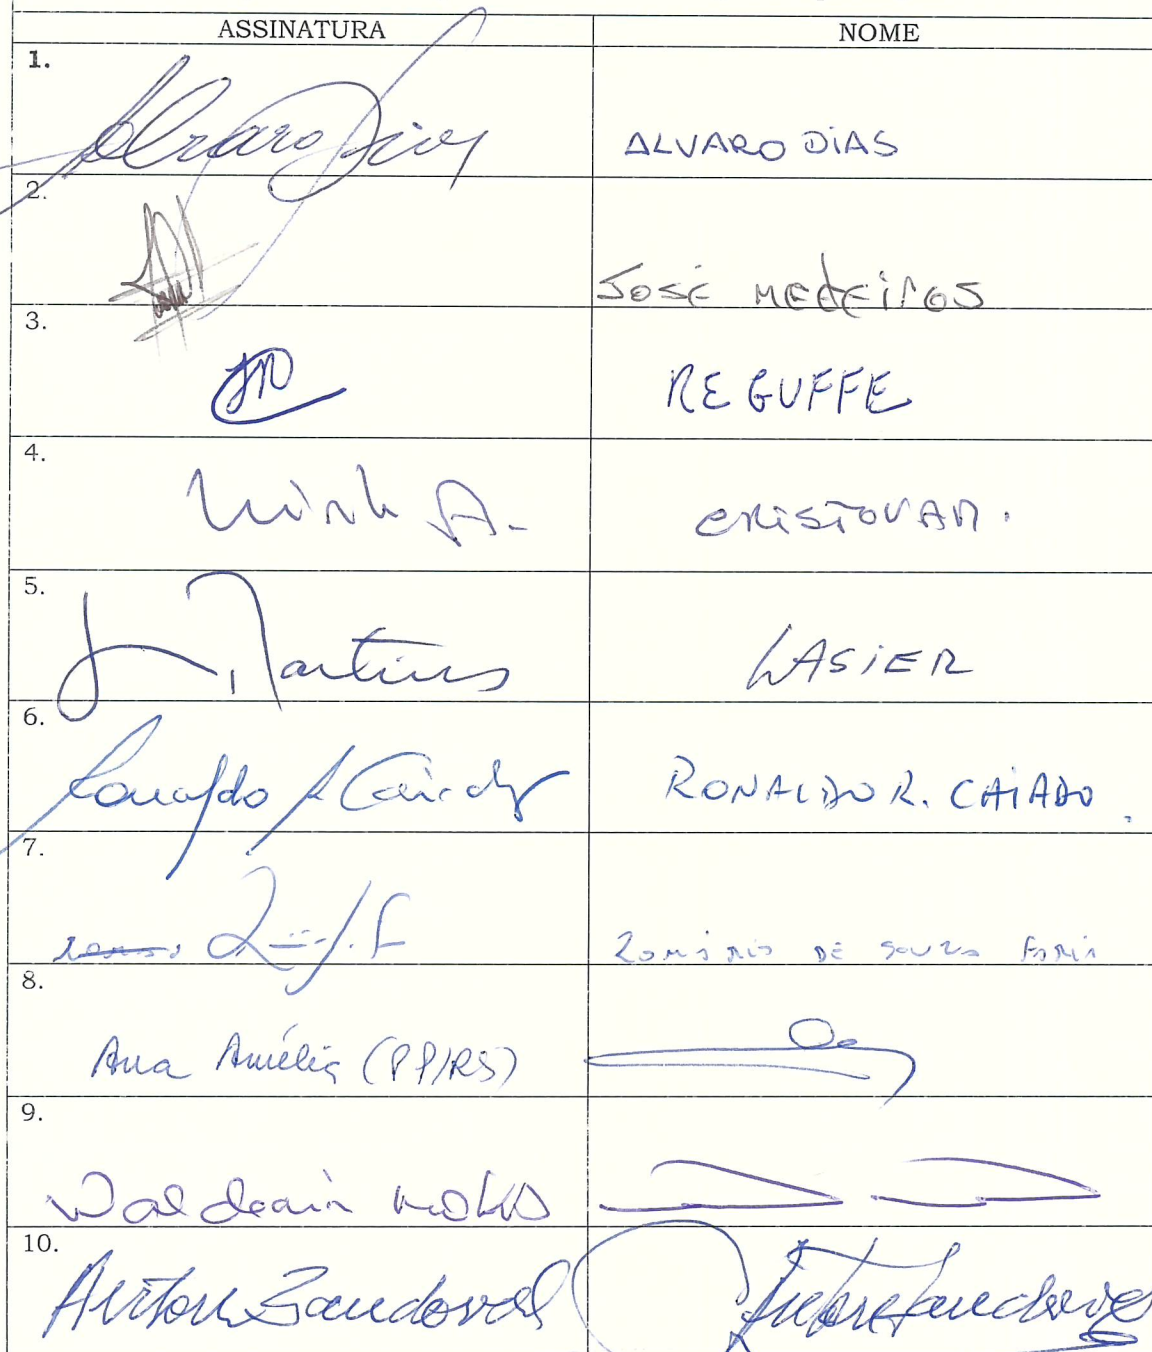 ASSINATURA NOME
1. Alvaro Dias ALVARO DiAS
2. José Medeiros
3. REGUFFE
4. CRISTOVAM.
5. Martins LASiER
6. Ronaldo R Caiado RONALDO R. CAiADO.
7. Romário DE Souza Faria
8. Ana Amélia (PP/RS)
9. Waldemir Moka
10. Airton Sandoval Airton Sandoval